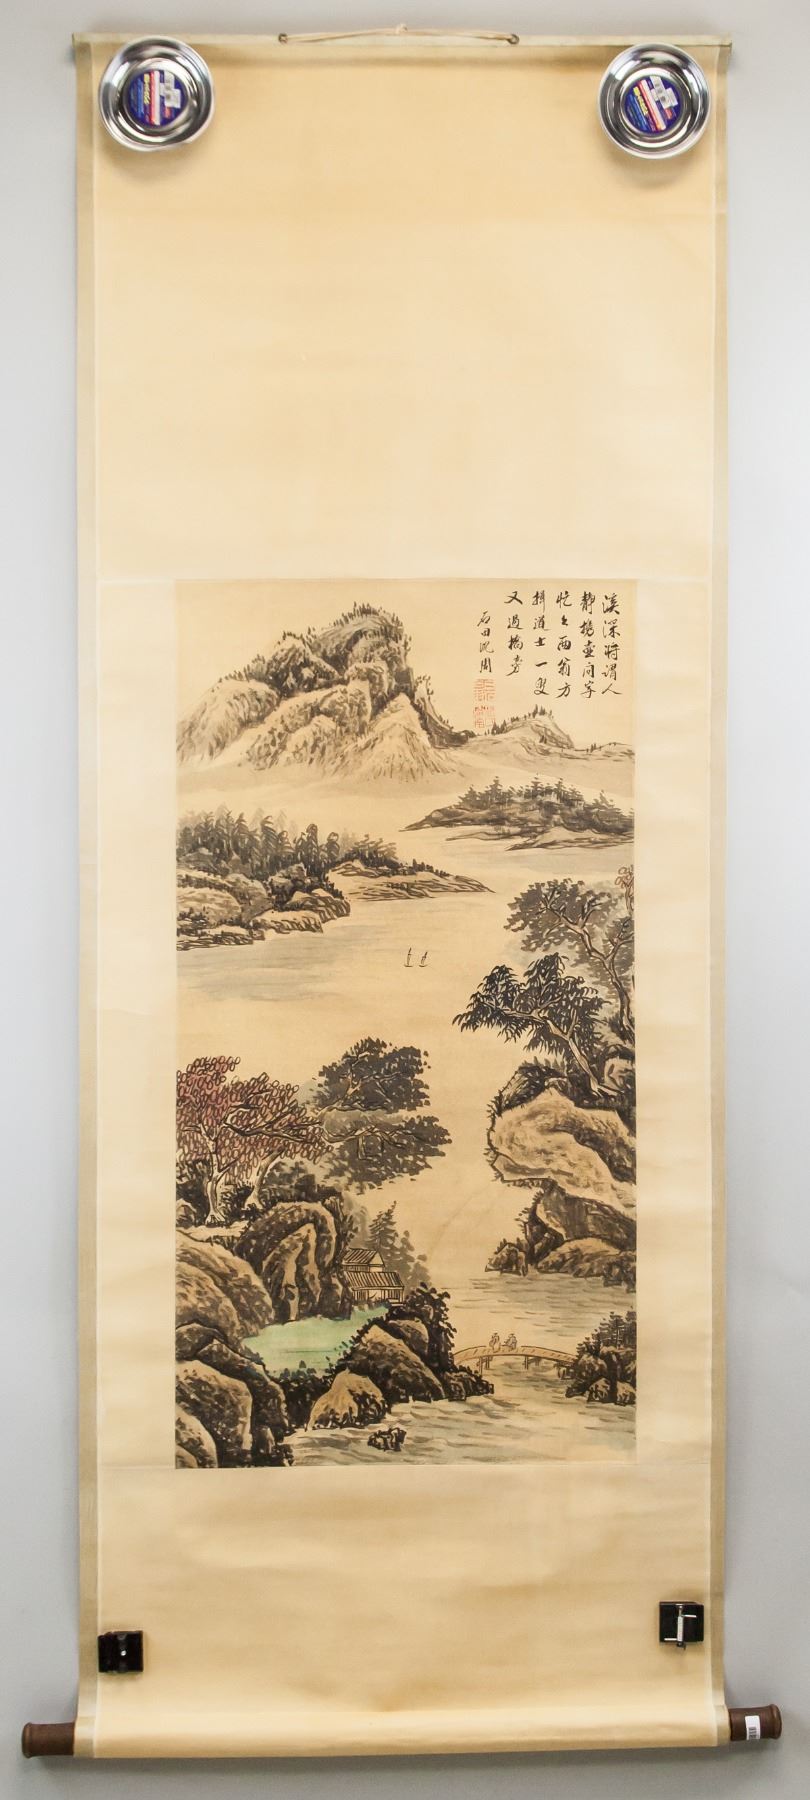 溪深將謂人
靜携壺问字
忙々両翁方
揖道士一叟
又過橋旁
石田沈周